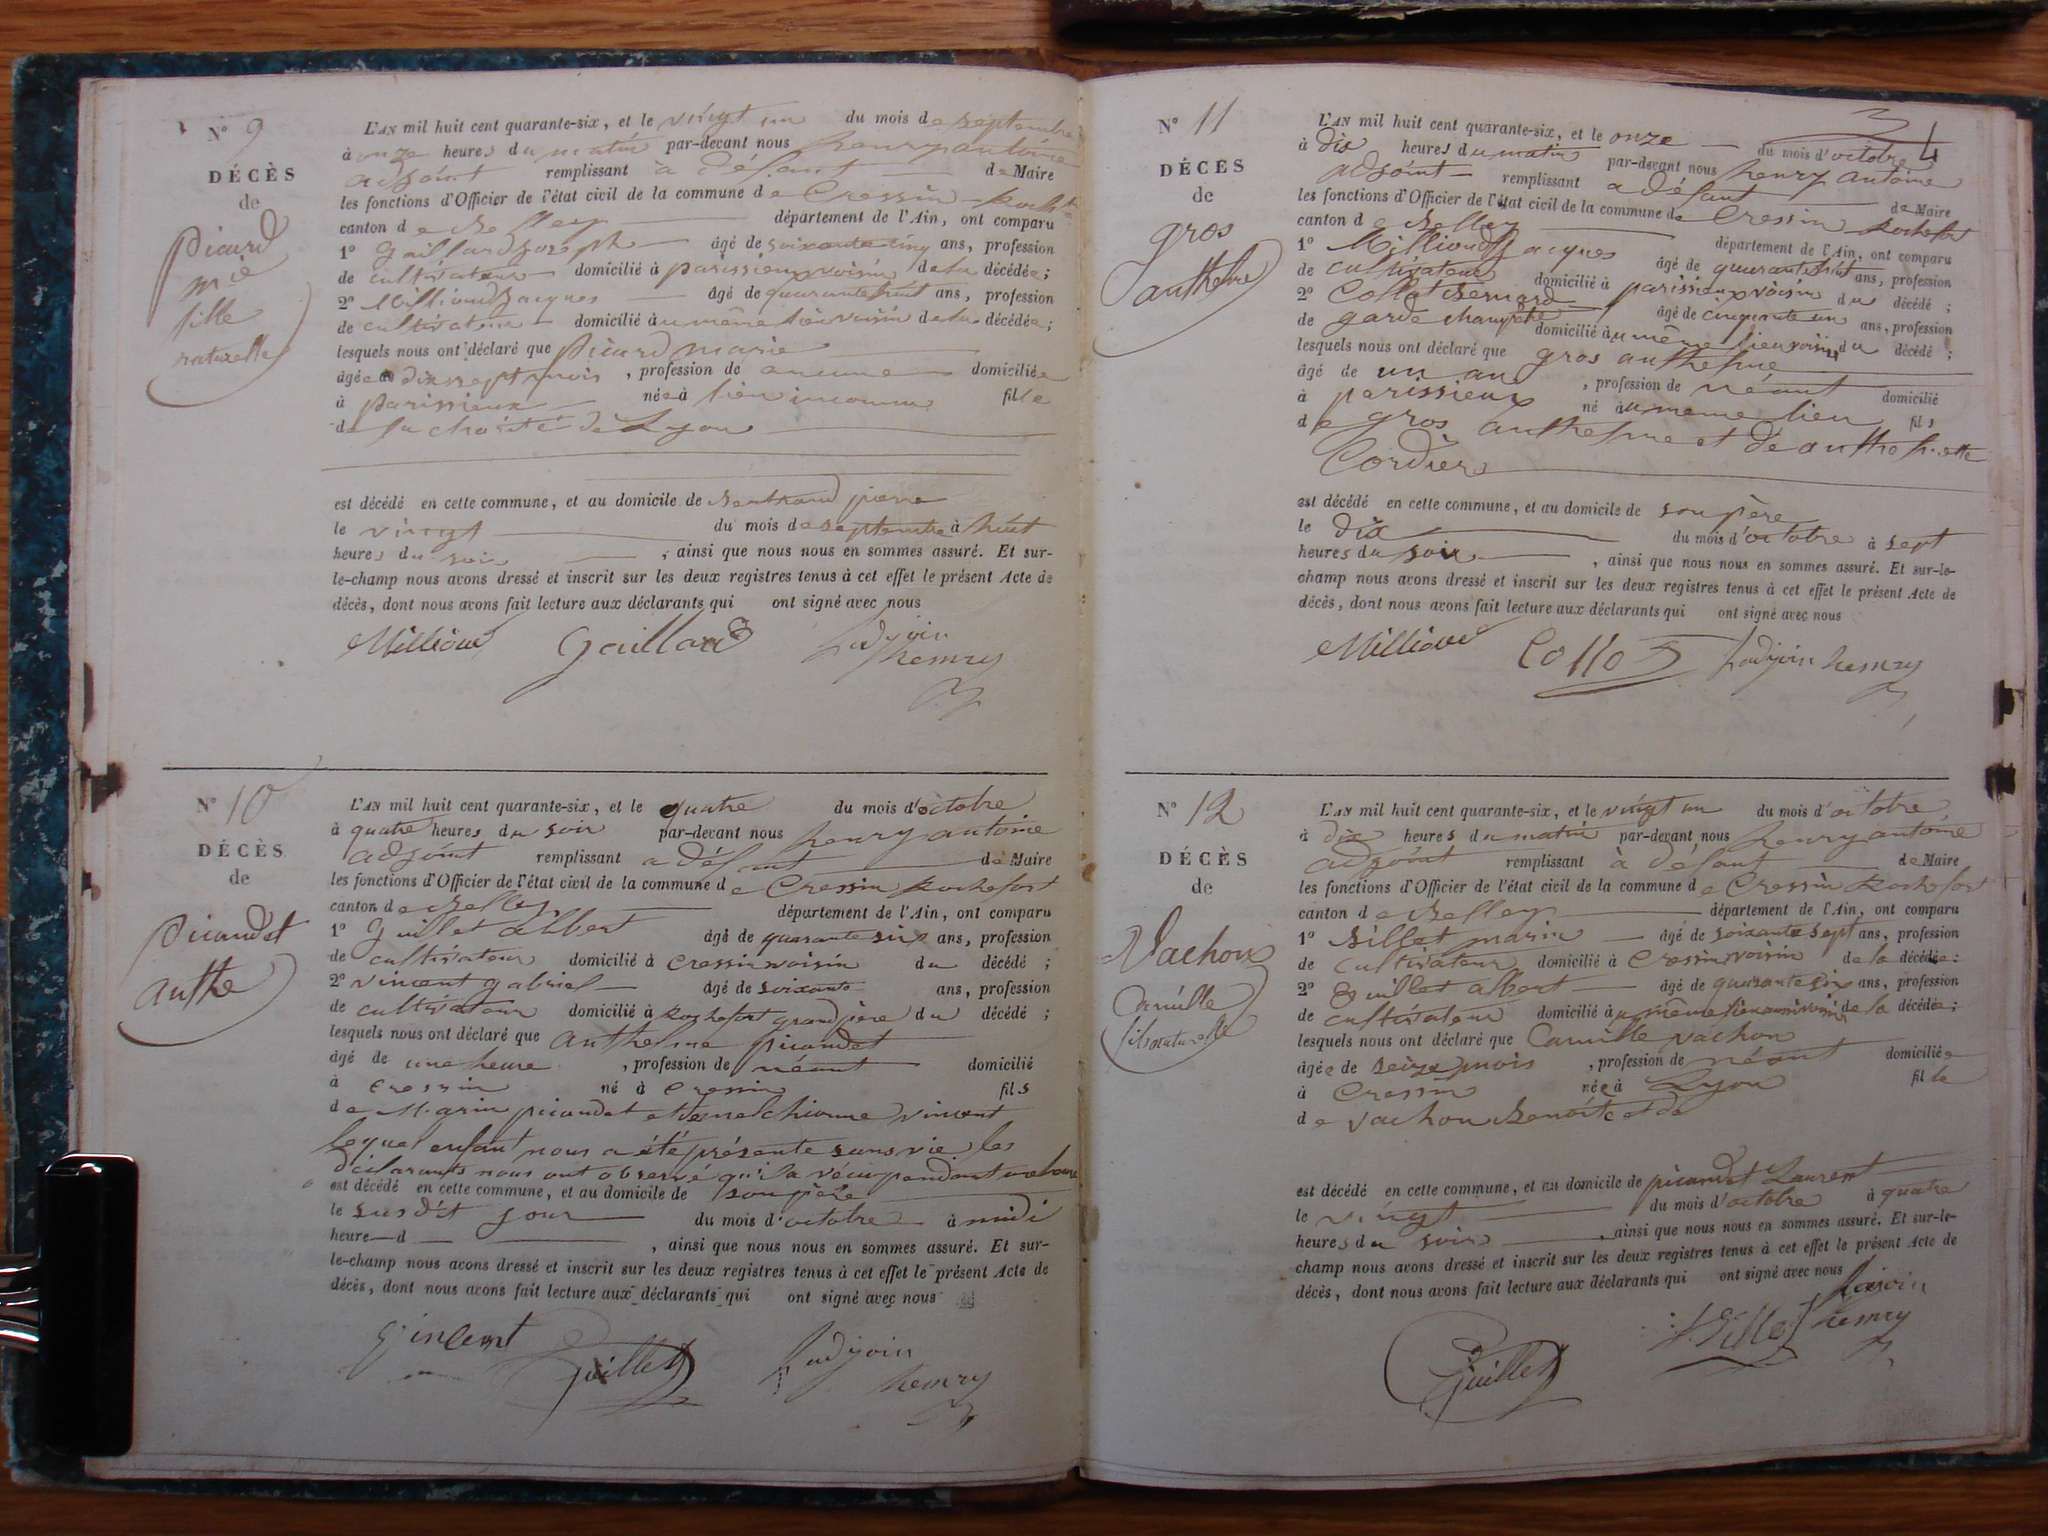 N° 9
DÉCÈS
de
picard
mie
fille
naturelle
L'AN mil huit cent quarante-six, et le vingt un du mois de septembre
à onze heures du matin par-devant nous henry antoine
adjoint remplissant à défaut de Maire
les fonctions d'Officier de l'état civil de la commune de Cressin Rochft
canton de Belley département de l'Ain, ont comparu
1° Gaillard joseph âgé de soixante cinq ans, profession
de cultivateur domicilié à parissieux voisin de la décédée;
2° Milliand jacques âgé de quarante huit ans, profession
de cultivateur domicilié au même lieu voisin de la décédée;
lesquels nous ont déclaré que picard marie
âgée dix sept mois, profession de aucune domiciliée
à parissieux née à lieu inconnu fille
de la charité de Lyon
est décédé en cette commune, et au domicile de Bertrand pierre
le vingt du mois de septembre à huit
heures du soir, ainsi que nous nous en sommes assuré. Et sur-
le-champ nous avons dressé et inscrit sur les deux registres tenus à cet effet le présent Acte de
décès, dont nous avons fait lecture aux déclarants qui ont signé avec nous
Gaillard
henry
N° 10
DÉCÈS
de
picaudat
anthe
L'AN mil huit cent quarante-six, et le quatre du mois d'octobre
à quatre heures du soir par-devant nous henry antoine
adjoint remplissant a défaut de Maire
les fonctions d'Officier de l'état civil de la commune de Cressin Rochefort
canton de Belley département de l'Ain, ont comparu
1° Guillet albert âgé de quarante six ans, profession
de cultivateur domicilié à cressin voisin du décédé;
2° vincent gabriel âgé de soixante ans, profession
de cultivateur domicilié à Rochefort grand père du décédé;
lesquels nous ont déclaré que anthelme picaudat
âgé de une heure, profession de néant domicilié
à cressin né à cressin fils
de Marin picaudat et de melchionne vincent
lequel enfant nous a été présenté sans vie les
déclarants nous ont observé qu'il a vécu pendant une heure
est décédé en cette commune, et au domicile de son père
le susdit jour du mois d'octobre à midi
heure d, ainsi que nous nous en sommes assuré. Et sur-
le-champ nous avons dressé et inscrit sur les deux registres tenus à cet effet le présent Acte de
décès, dont nous avons fait lecture aux déclarants qui ont signé avec nous
Vincent Guillet
henry
N° 11
DÉCÈS
de
gros
anthelme
L'AN mil huit cent quarante-six, et le onze du mois d'octobre
à dix heures du matin par-devant nous henry antoine
adjoint remplissant a défaut de Maire
les fonctions d'Officier de l'état civil de la commune de Cressin Rochefort
canton de Belley département de l'Ain, ont comparu
1° Milliand jacques âgé de quarante huit ans, profession
de cultivateur domicilié à parissieux voisin du décédé;
2° Collot Bernard âgé de cinquante un ans, profession
de garde champêtre domicilié au même lieu voisin du décédé;
lesquels nous ont déclaré que gros anthelme
âgé de un an, profession de néant domicilié
à parissieux né au même lieu fils
de gros anthelme et de anthelmette
Cordier
est décédé en cette commune, et au domicile de son père
le dix du mois d'octobre à sept
heures du soir, ainsi que nous nous en sommes assuré. Et sur-le-
champ nous avons dressé et inscrit sur les deux registres tenus à cet effet le présent Acte de
décès, dont nous avons fait lecture aux déclarants qui ont signé avec nous
Collot henry
N° 12
DÉCÈS
de
Vachon
Camille
L'AN mil huit cent quarante-six, et le vingt un du mois d'octobre
à dix heures du matin par-devant nous henry antoine
adjoint remplissant à défaut de Maire
les fonctions d'Officier de l'état civil de la commune de Cressin Rochefort
canton de Belley département de l'Ain, ont comparu
1° Billet marin âgé de soixante sept ans, profession
de cultivateur domicilié à Cressin voisin de la décédée;
2° Guillet albert âgé de quarante six ans, profession
de cultivateur domicilié au même lieu aussi voisin de la décédée;
lesquels nous ont déclaré que Camille vachon
âgée de seize mois, profession de néant domiciliée
à Cressin née à Lyon fille
de vachon Benoîte et de
est décédé en cette commune, et au domicile de picaudat Laurent
le vingt du mois d'octobre à quatre
heures du soir, ainsi que nous nous en sommes assuré. Et sur-le-
champ nous avons dressé et inscrit sur les deux registres tenus à cet effet le présent Acte de
décès, dont nous avons fait lecture aux déclarants qui ont signé avec nous
Guillet Billet henry